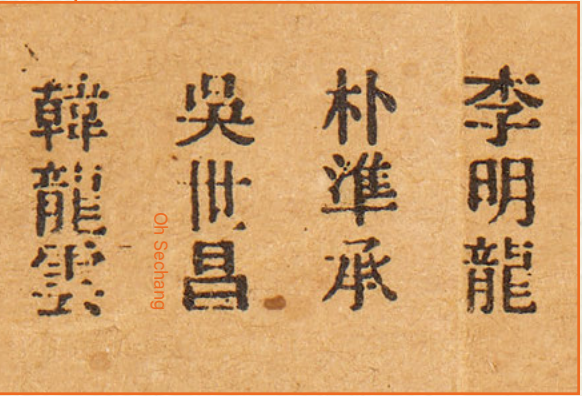 李明龍
朴準承
吳世昌
Oh Sechang
韓龍雲